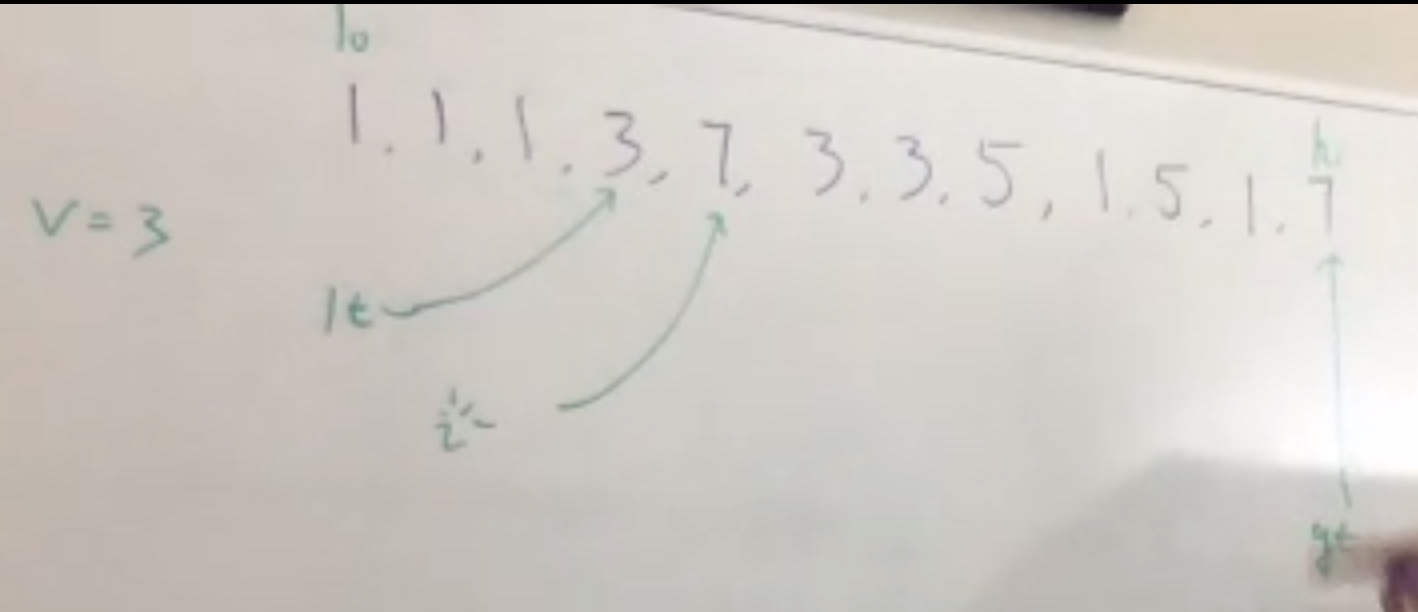 lo
1, 1, 1, 3, 7, 3, 3, 5, 1, 5, 1, 7
hi
V = 3
lt
i
gt